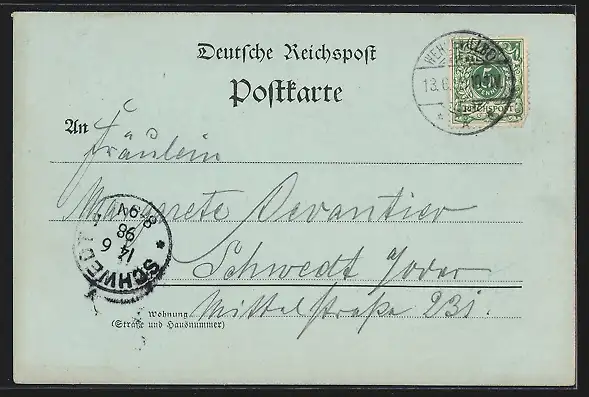 Deutsche Reichspost
Postkarte
5
REICHSPOST
13.6
An
Fräulein
Margarete Devantier
Schwedt /Oder
Mittelstraße 23 i.
Wohnung
(Straße und Hausnummer)
SCHWEDT
14 6
98
8-9V